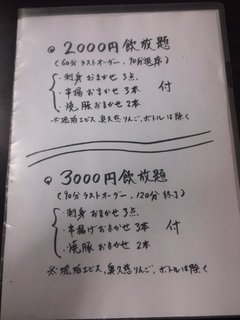 2000円飲放題
(60分ラストオーダー、90分退席)
・刺身おまかせ 3点
・串揚おまかせ 3本 付
・焼豚おまかせ 2本
※琥珀エビス、奥久慈りんご、ボトルは除く
3000円飲放題
(90分ラストオーダー、120分終了)
・刺身おまかせ 3点
・串揚げおまかせ 3本 付
・焼豚おまかせ 2本
※琥珀エビス、奥久慈りんご、ボトルは除く